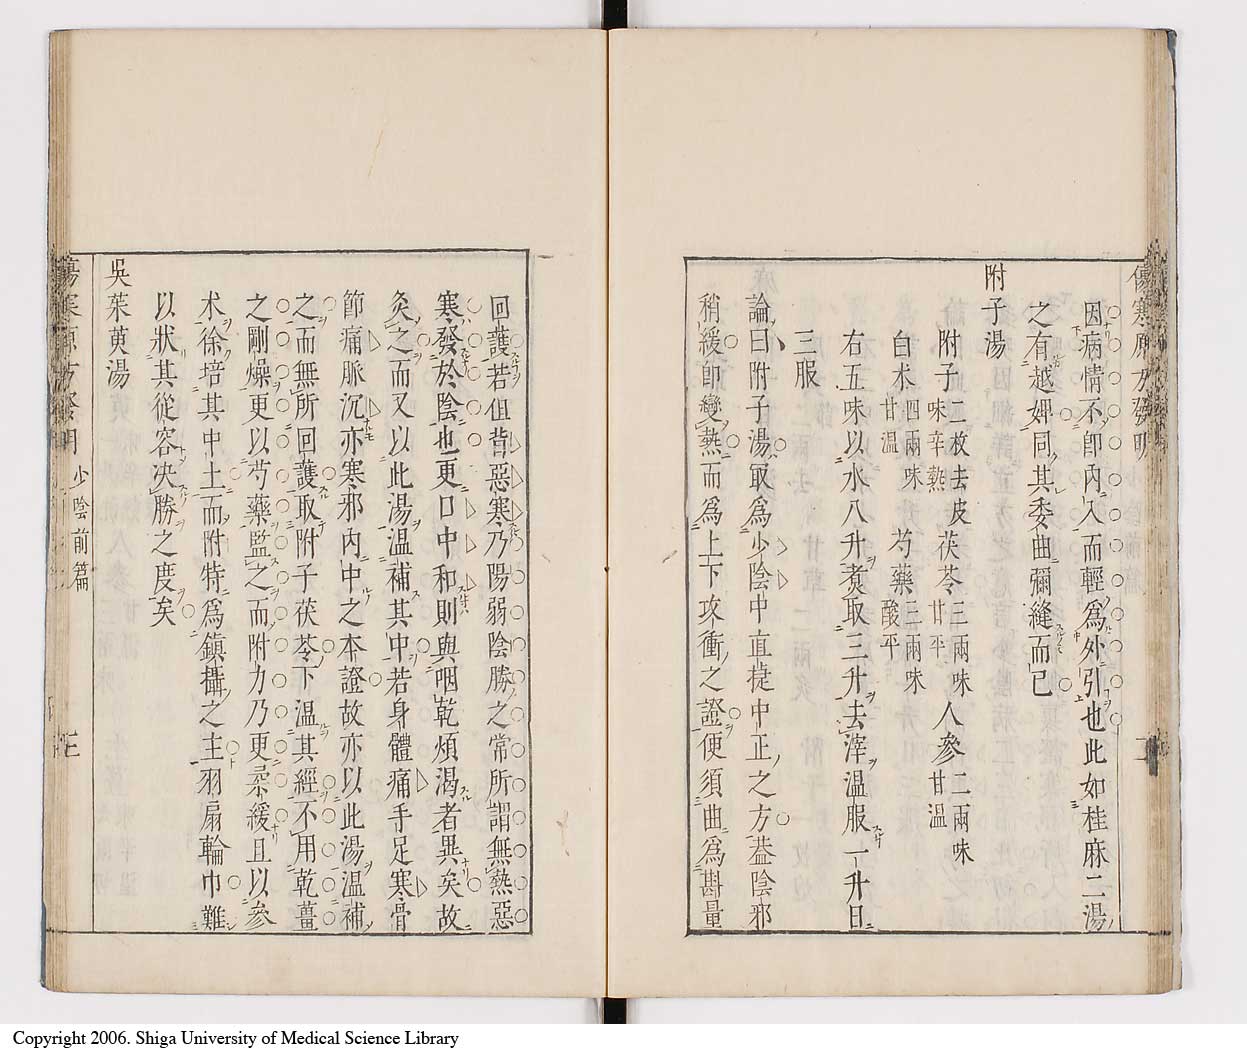 因病情不卽內入而輕爲外引也此如桂麻二湯
之有越婢同其委曲彌縫而已
附子湯
附子二枚去皮味辛熱 茯苓三兩味甘平 人參二兩味甘溫
白朮四兩味甘溫 芍藥三兩味酸平
右五味以水八升煑取三升去滓溫服一升日
三服
論曰附子湯取爲少陰中直捷中正之方葢陰邪
稍緩卽變熱而爲上下攻衝之證便須曲爲斟量
回護若伹背惡寒乃陽弱陰勝之常所謂無熱惡
寒發於陰也更口中和則與咽乾煩渴者異矣故
灸之而又以此湯溫補其中若身體痛手足寒骨
節痛脈沉亦寒邪內中之本證故亦以此湯溫補
之而無所回護取附子茯苓下溫其經不用乾薑
之剛燥更以芍藥監之而附力乃更柔緩且以參
朮徐培其中土而附特爲鎮攝之主羽扇輪巾難
以狀其從容决勝之度矣
吳茱萸湯
傷寒原方發明 少陰前篇
Copyright 2006. Shiga University of Medical Science Library